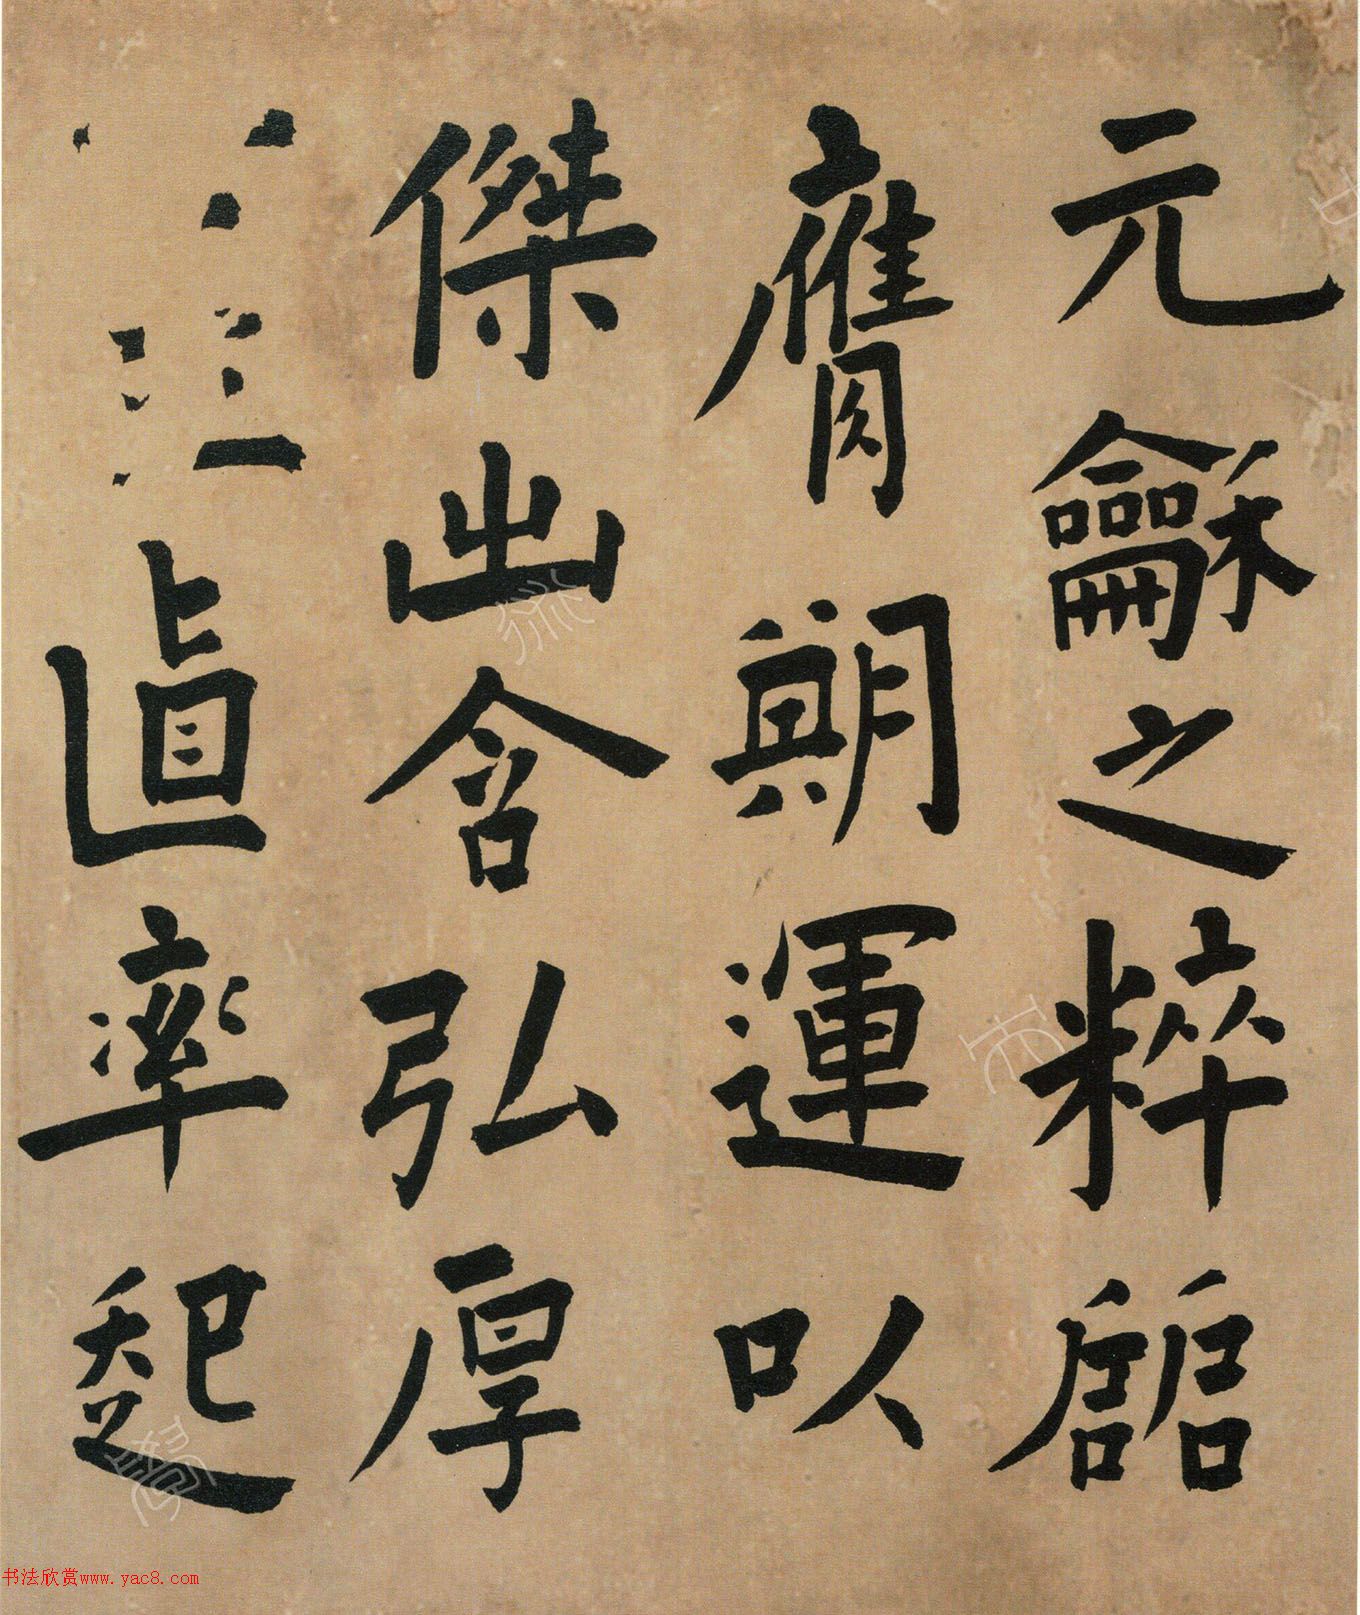 元龢之粹
膺期運以
傑出含弘厚
直率起
书法欣赏www.yac8.com